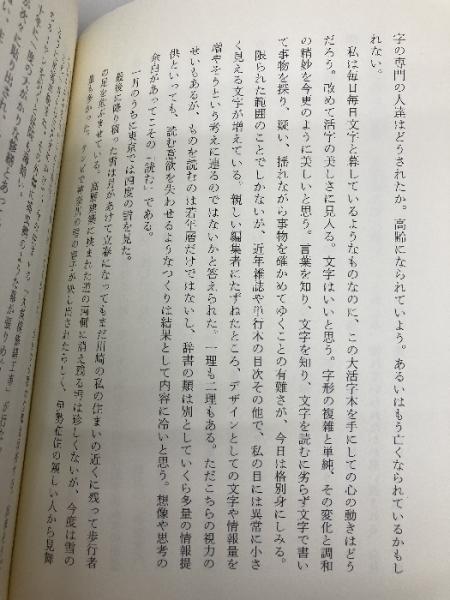 字の専門の人達はどうされたか。高齢になられていよう。あるいはもう亡くなられているかもし
れない。
私は毎日毎日文字と暮しているようなものなのに、この大活字本を手にしての心の動きはどう
だろう。改めて活字の美しさに見入る。文字はいいと思う。字形の複雑と単純、その変化と調和
の精妙を今更のように美しいと思う。言葉を知り、文字を知り、文字を読むに劣らず文字で書い
て事物を探り、疑い、揺れながら事物を確かめてゆくことの有難さが、今日は格別身にしみる。
限られた範囲のことでしかないが、近年雑誌や単行本の目次その他で、私の目には異常に小さ
く見える文字が増えている。親しい編集者にたずねたところ、デザインとしての文字や情報量を
増やそうという考えに連るのではないかと答えられた。一理も二理もある。ただこちらの視力の
せいもあるが、ものを読むのは若年層だけではないし、辞書の類は別としていくら多量の情報提
供といっても、読む意欲を失わせるようなつくりは結果として内容に冷いと思う。想像や思考の
余白があってこその「読む」である。
一月のうちに東京では四度の雪を見た。
最後に降り積った雪は月があけて立春になってもまだ川崎の私の住まいの近くに残って歩行者
の足を危ぶませている。高層建築に挟まれた道の両側に消え残る雪は珍しくないが、今度は雪の
量も多かった。テレビで神奈川の雪の様子が映し出されたらしく、伊勢在住の親しい人から見舞